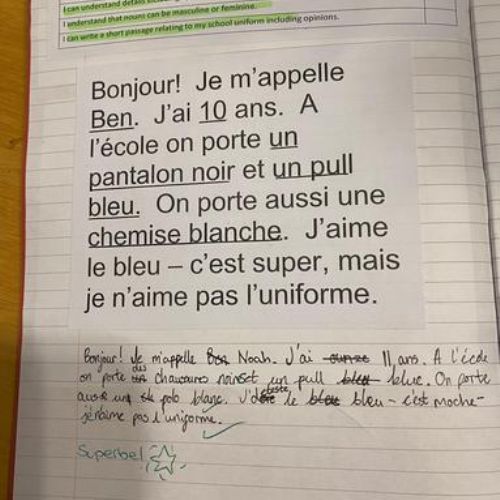 I can understand details
I understand that nouns can be masculine or feminine.
I can write a short passage relating to my school uniform including opinions.
Bonjour! Je m'appelle
Ben. J'ai 10 ans. A
l'école on porte un
pantalon noir et un pull
bleu. On porte aussi une
chemise blanche. J'aime
le bleu – c'est super, mais
je n'aime pas l'uniforme.
Bonjour! Je m'appelle Ben Noah. J'ai 11 ans. A l'école
on porte des chaussures noires et un pull bleu blue. On porte
aussi un polo blanc. J'déteste le bleu bleu - c'est moche -
je n'aime pas l'uniforme.
Superbe!